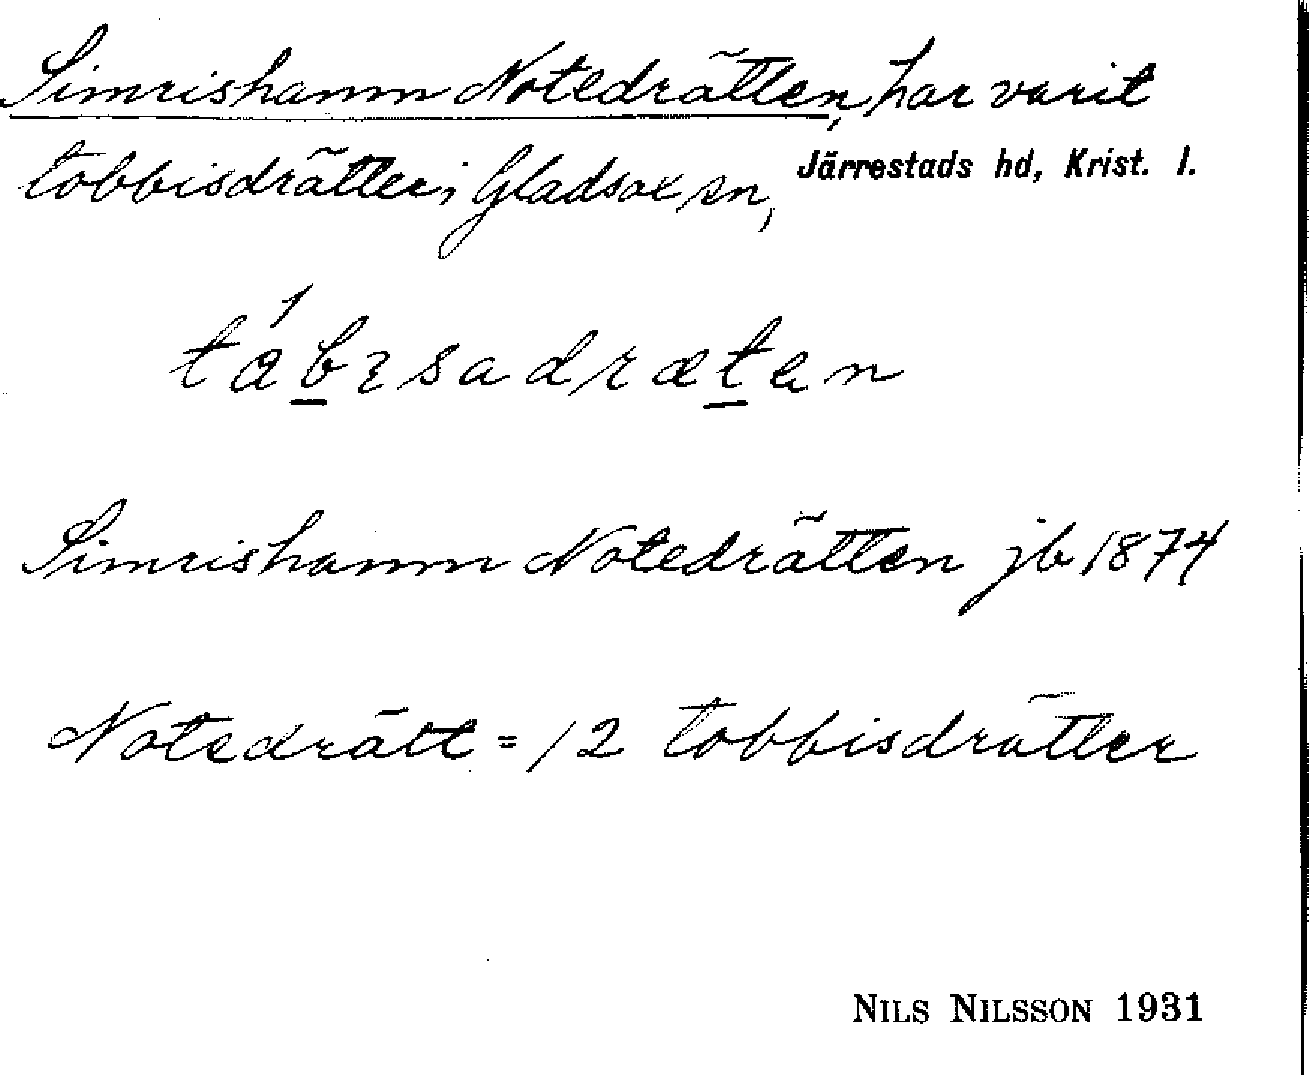 Simrishamn Notedrätten, har varit
tobbisdrätter i Gladsax sn, Järrestads hd, Krist. l.
Simrishamn Notedrätten jb 1874
Notedrätt = 12 tobbisdrätter
NILS NILSSON 1931